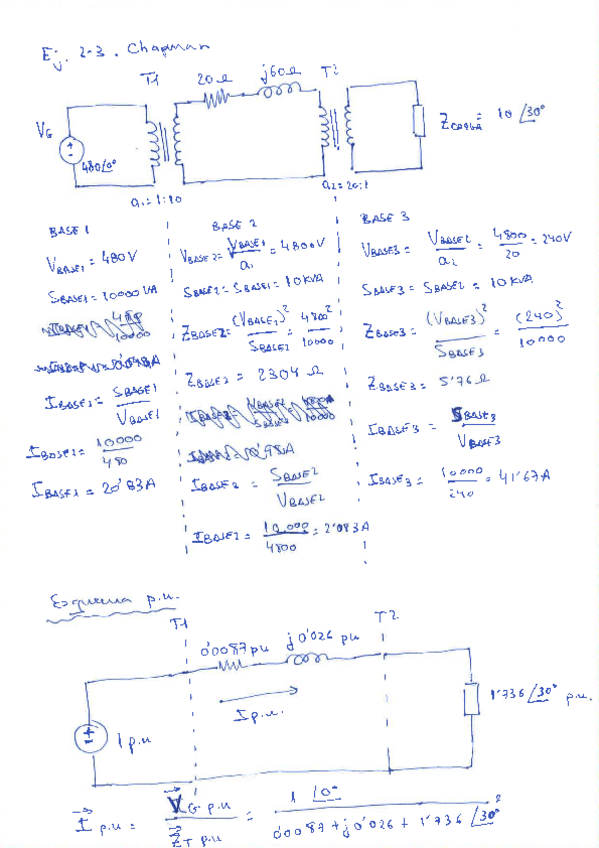 Ej. 2-3. Chapman
T1 20Ω j60Ω T2
V_G 480∠0° Z_CARGA = 10 ∠30°
a₁ = 1:10 a₂ = 20:1
BASE 1
V_BASE1 = 480V
S_BASE1 = 10000 VA
I_BASE1 = S_BASE1 / V_BASE1
I_BASE1 = 10000 / 480
I_BASE1 = 20'83A
BASE 2
V_BASE2 = V_BASE1 / a₁ = 4800V
S_BASE2 = S_BASE1 = 10KVA
Z_BASE2 = (V_BASE2)² / S_BASE2 = 4800² / 10000
Z_BASE2 = 2304 Ω
I_BASE2 = S_BASE2 / V_BASE2
I_BASE2 = 10.000 / 4800 = 2'083A
BASE 3
V_BASE3 = V_BASE2 / a₂ = 4800 / 20 = 240V
S_BASE3 = S_BASE2 = 10KVA
Z_BASE3 = (V_BASE3)² / S_BASE3 = (240)² / 10000
Z_BASE3 = 5'76Ω
I_BASE3 = S_BASE3 / V_BASE3
I_BASE3 = 10000 / 240 = 41'67A
Esquema p.u.
T1 T2
0'0087 pu j0'026 pu
I p.u.
1 p.u
1'736 ∠30° p.u.
I p.u = V_G p.u / Z_T p.u = 1 ∠0° / 0'0087 + j0'026 + 1'736 ∠30°